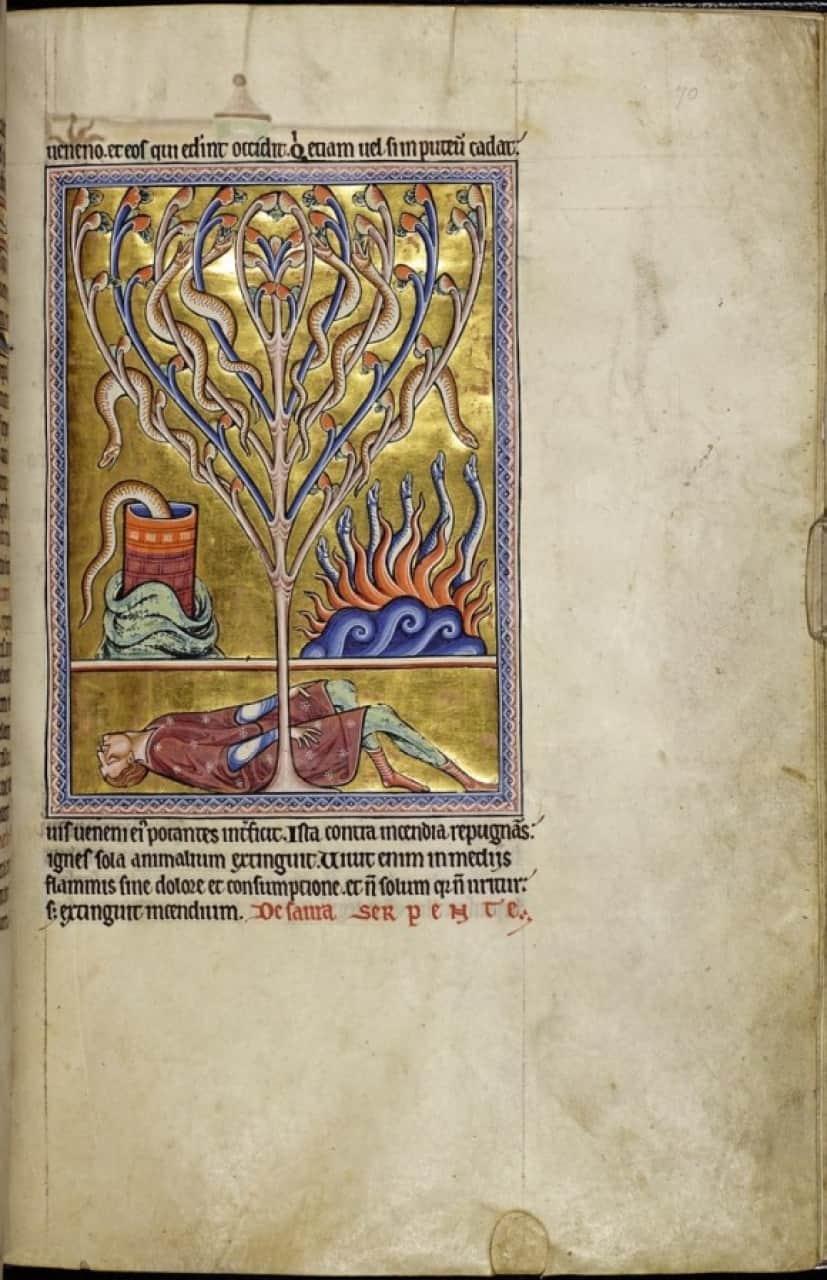 70
ueneno. et eos qui ederint occidit. Q̇ etiam uel si in puteū cadat:
uis ueneni ei᾽ potantes int̄ficit. Ista contra incendia repugnās:
ignes sola animalium extinguit. Uiuit enim in mediis
flammis sine dolore et consumptione. et n̄ solum q n̄ uritur:
s; extinguit incendium. De saura SERPENTE.